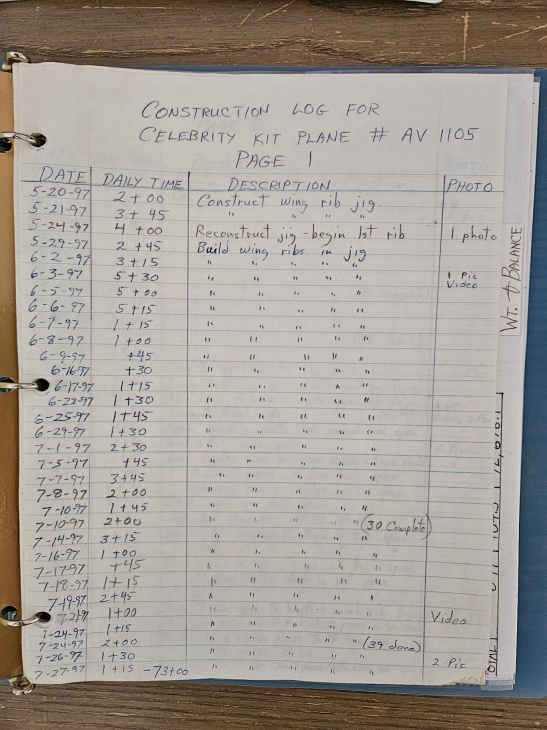 CONSTRUCTION LOG FOR
CELEBRITY KIT PLANE # AV 1105
PAGE 1
DATE DAILY TIME DESCRIPTION PHOTO
5-20-97 2+00 Construct wing rib jig
5-21-97 3+45 " " " "
5-24-97 4+00 Reconstruct jig - begin 1st rib 1 photo
5-29-97 2+45 Build wing ribs in jig
6-2-97 3+15 " " " " "
6-3-97 5+30 " " " " " 1 Pic Video
6-5-97 5+00 " " " " "
6-6-97 5+15 " " " " "
6-7-97 1+15 " " " " "
6-8-97 1+00 " " " " "
6-9-97 +45 " " " " "
6-16-97 +30 " " " " "
6-17-97 1+15 " " " " "
6-23-97 1+30 " " " " "
6-25-97 1+45 " " " " "
6-29-97 1+30 " " " " "
7-1-97 2+30 " " " " "
7-5-97 +45 " " " " "
7-7-97 3+45 " " " " "
7-8-97 2+00 " " " " "
7-10-97 1+45 " " " " "
7-10-97 2+00 " " " " " (30 Complete)
7-14-97 3+15 " " " " "
7-16-97 1+00 " " " " "
7-17-97 +45 " " " " "
7-18-97 1+15 " " " " "
7-19-97 2+45 " " " " "
1+00 " " " " " Video
7-24-97 1+15 " " " " "
7-24-97 2+00 " " " " " (39 done)
7-26-97 1+30 " " " " " 2 Pic
7-27-97 1+15 -73+00 " " " " "
WT. & BALANCE